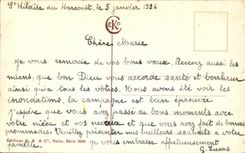 St Hilaire du Harcouët, le 5 janvier 1926
EKC
Chère Marie
Je vous remercie de vos bons vœux. Recevez aussi les
miens, que bon Dieu vous accorde santé et bonheur
ainsi qu'à tous les vôtres. Nous avons été voir les
inondations, la campagne est bien éprouvée
J'espère que vous avez passé de bons moments avec
votre nièce et vos neveux et que vous avez fait de bonnes
promenades. Veuillez présenter mes meilleurs souhaits à votre
famille. Je vous embrasse affectueusement
G.
Editions Paris, Série